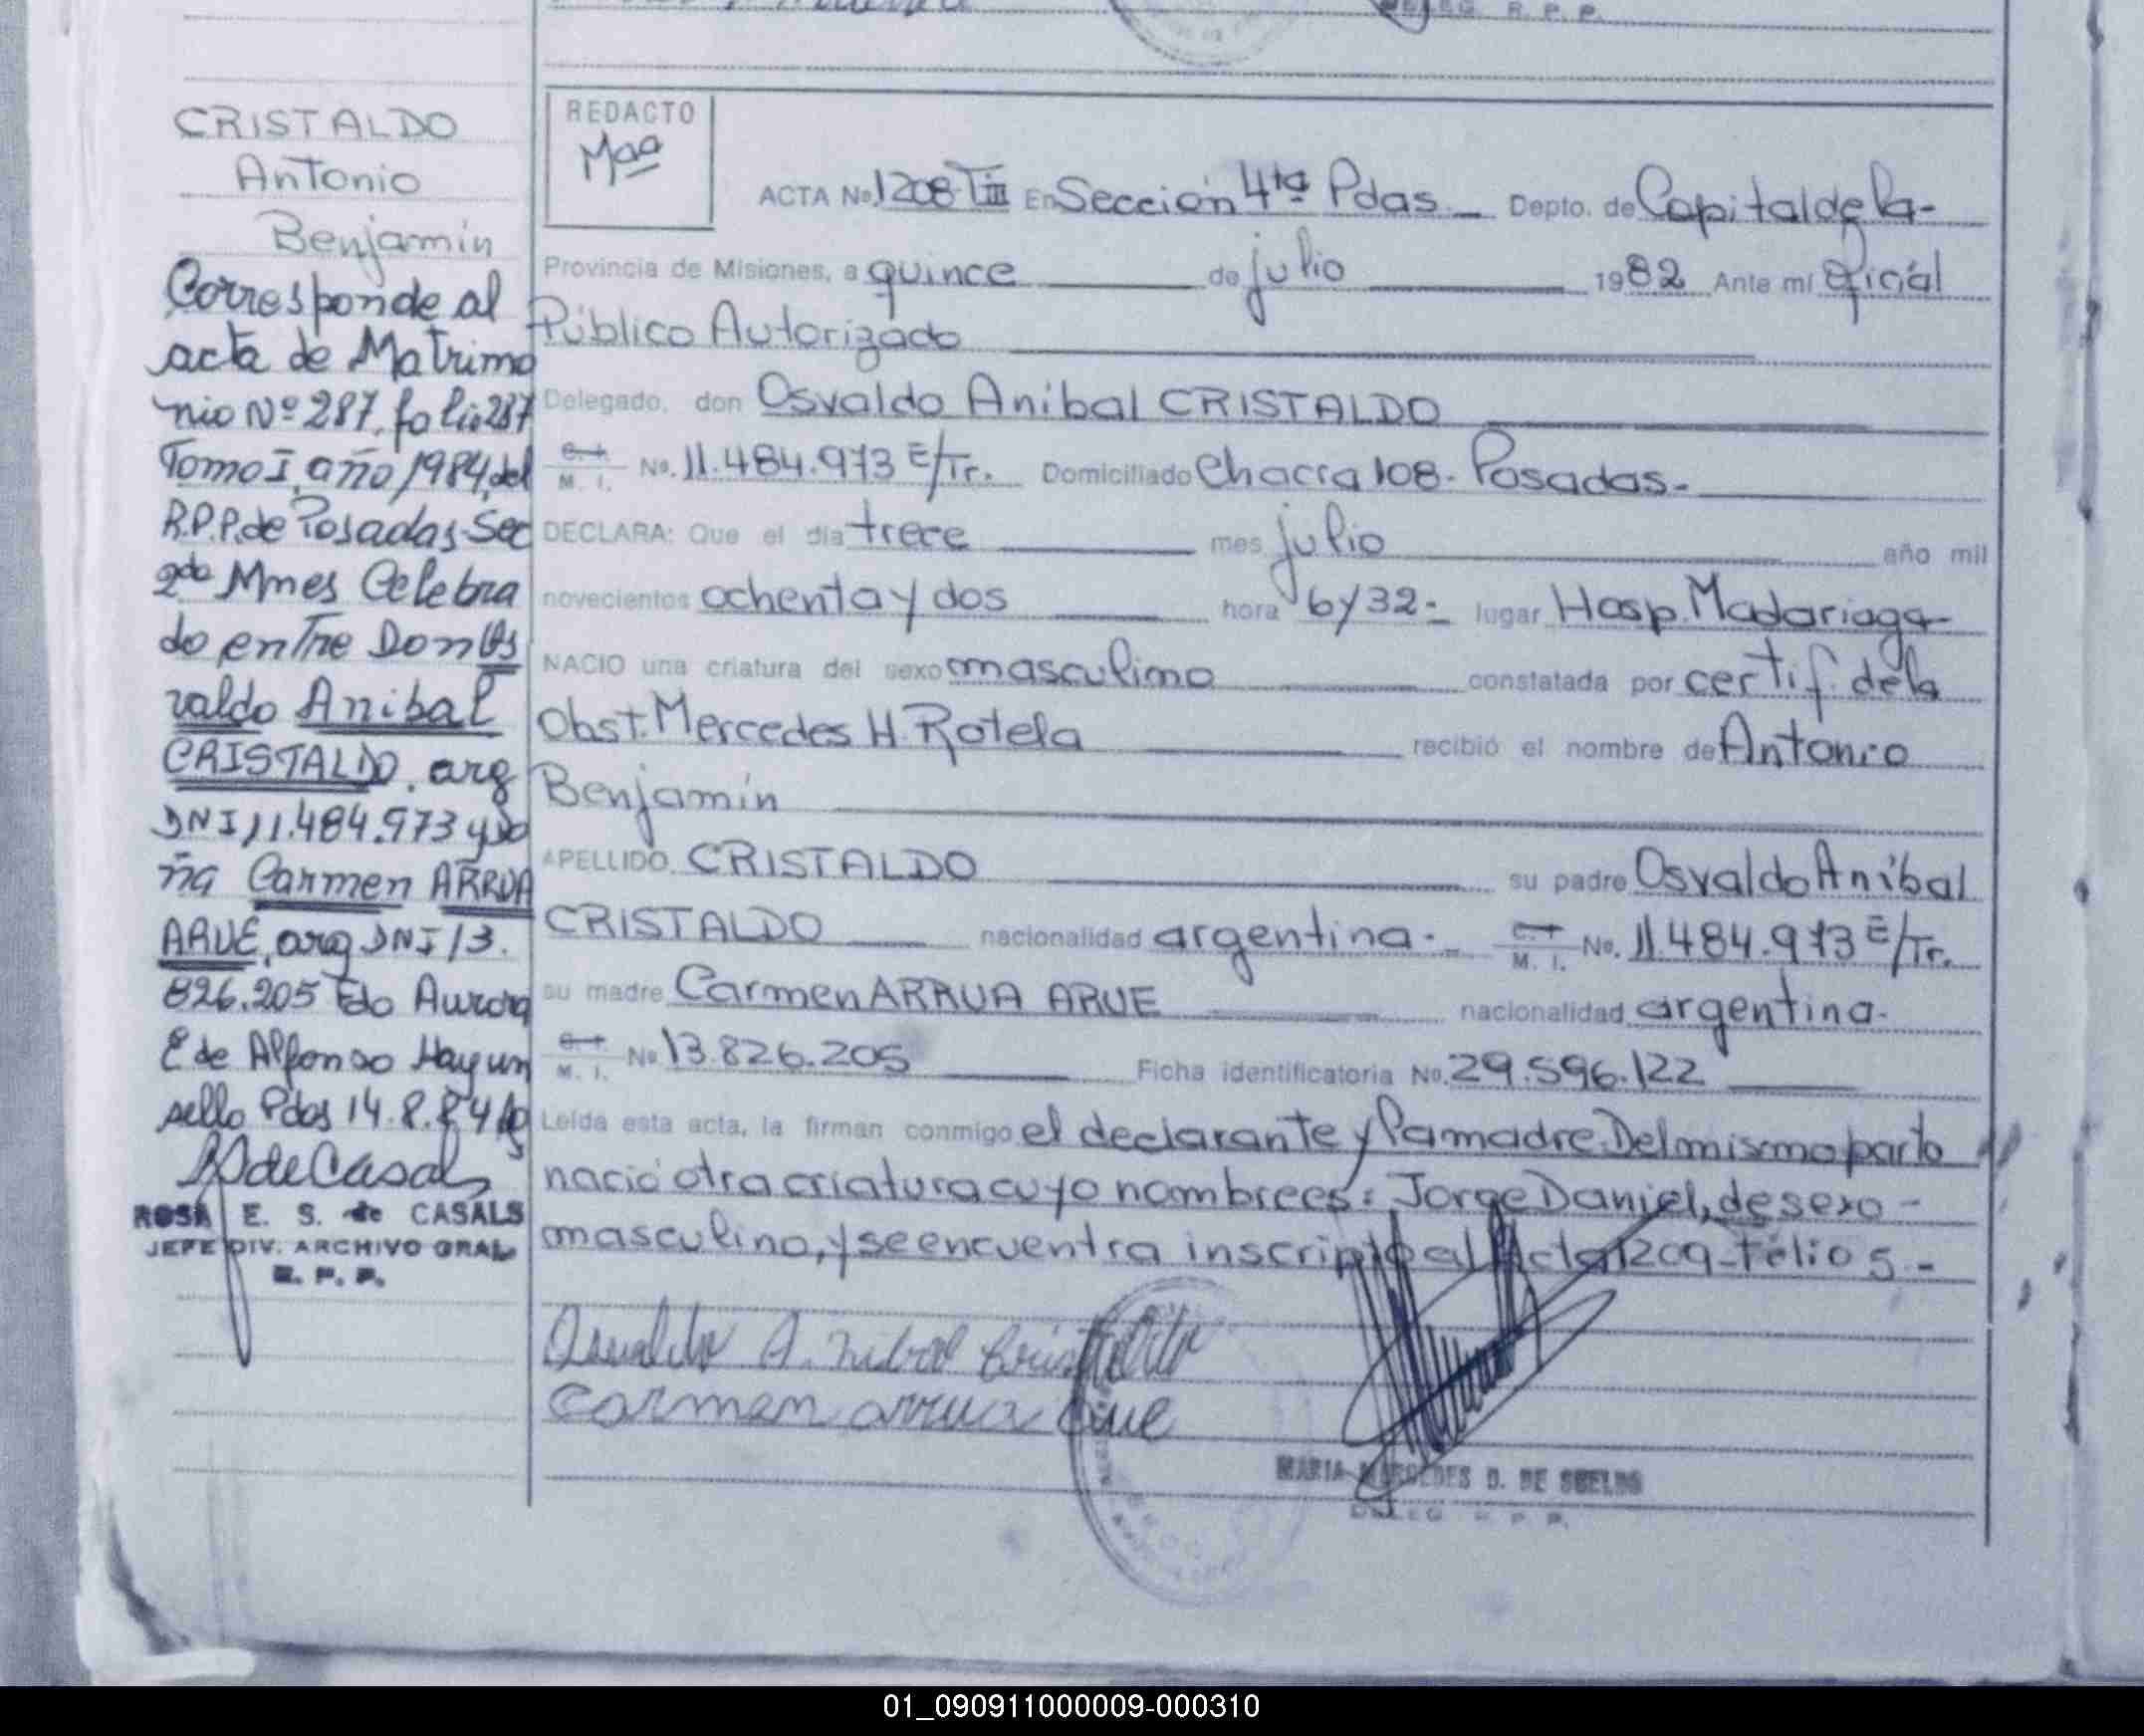 R. P. P.
CRISTALDO
Antonio
Benjamín
Corresponde al
acta de Matrimo
nio Nº 287, folio 287
Tomo I, año 1984, del
R.P.P. de Posadas-Sec
2da Mnes Celebra
do entre Don Os
valdo Anibal
CRISTALDO, arg
DNI 11.484.973 y Do
ña Carmen ARRUA
ARUE, arg DNI 13.
826.205 Fdo Aurora
E de Alfonso Hay un
sello Pdas 14.8.84
ROSA E. S. de CASALS
JEFE DIV. ARCHIVO GRAL
R. P. P.
REDACTO
Mªª
ACTA Nº 1208 T III En Sección 4ta Pdas. Depto. de Capital de la-
Provincia de Misiones, a quince de julio 1982 Ante mí Oficial
Público Autorizado
Delegado, don Osvaldo Anibal CRISTALDO
C. I. M. I. No. 11.484.973 E/Tr. Domiciliado Chacra 108- Posadas-
DECLARA: Que el día trece mes julio año mil
novecientos ochenta y dos hora 6 y 32- lugar Hosp. Madariaga
NACIO una criatura del sexo masculino constatada por certif. de la
Obst. Mercedes H. Rotela recibió el nombre de Antonio
Benjamín
APELLIDO CRISTALDO su padre Osvaldo Aníbal
CRISTALDO nacionalidad argentina- C. I. M. I. No. 11.484.973 E/Tr.
su madre Carmen ARRUA ARUE nacionalidad argentina-
C. I. M. I. No 13.826.205 Ficha identificatoria No. 29.596.122
Leída esta acta, la firman conmigo el declarante y la madre. Del mismo parto
nació otra criatura cuyo nombre es: Jorge Daniel, de sexo -
masculino, y se encuentra inscripto al Acta 1209- folio 5 -
Osvaldo Anibal Cristaldo
Carmen arrua arue
MARIA MERCEDES D. DE
DELEG. R. P. P.
01_090911000009-000310